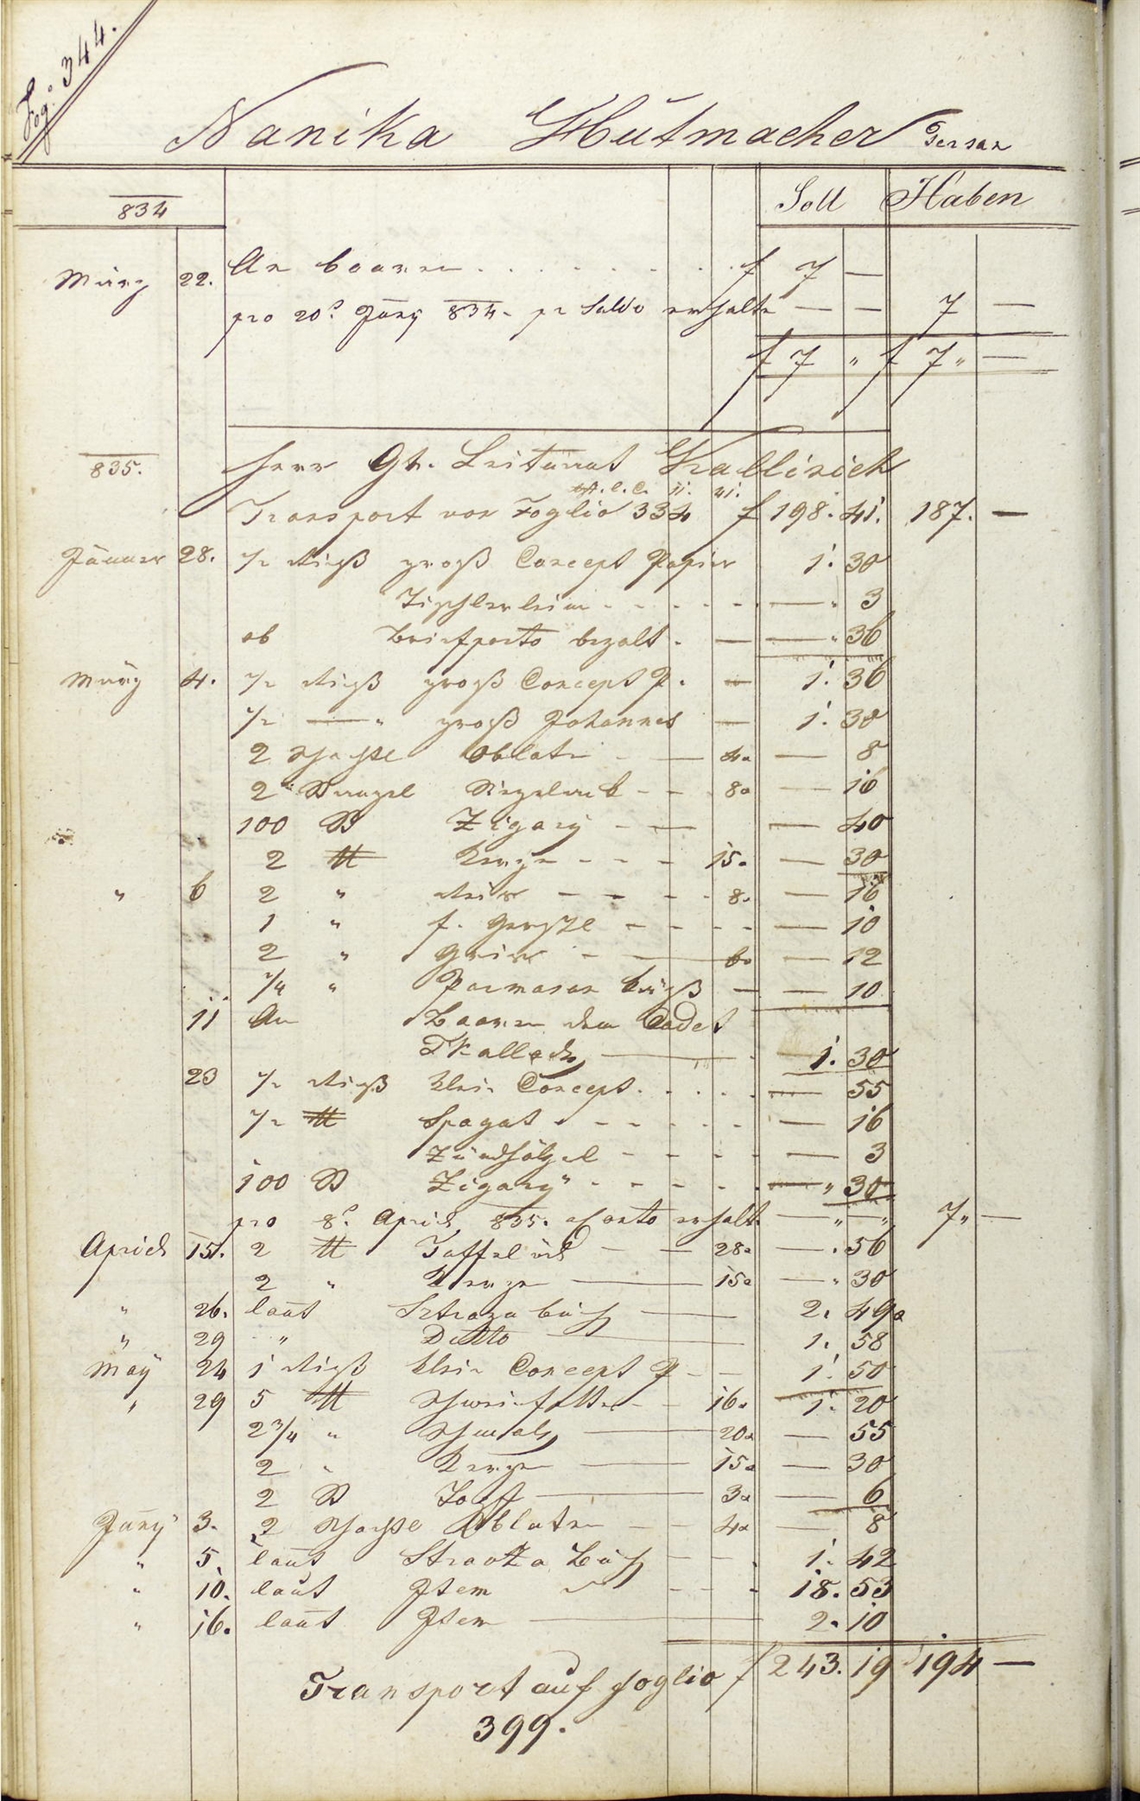 Fog: 344.
Nanika Hütmacher
834
Soll Haben
März 22. An baaren . . . . . . . . f 7 —
pro 20t Juny 834. pr Saldo erhalten — — 7 —
f 7 " f 7 " —
835. Herr Gr. Leitünat Krallisich
11. 41.
Transport von Foglio 334 f 198. 41. 187. —
Jänner 28. 1/2 Rieß groß Concept Papier 1. 30
Tischlerleim . - - . - - — " 3
ab Briefporto bezalt . — — " 36
März 4. 1/2 Rieß groß Concept P. — 1. 36
1/2 — " groß Johannes — 1. 30
2 Schachtl Oblaten — 4. — 8
2 Stangel Siegelwak - - 8. — 16
100 St Zigary - — — 40
2 tt Kerzen - - - 15. — 30
" 6 2 " Reis — - - 8. — 16
1 " f. Gerstl - - - - — 10
2 " Gries - — 6. — 12
1/4 " Parmasan Käß — — 10
11 An Baaren dem Cadet
— 1. 30
23 1/2 Rieß klein Concept . . . . — 55
1/2 tt Spagat . - - - - - — 16
Zündhölzel - - - - — 3
100 St Zigary - - - - - — " 30
pro 8t April 835. a Conto erhalt. — " — " 7 " —
April 15. 2 tt Taffelöl — — 28. — . 56
2 " Kerzen — 15. — " 30
" 26. laut Strazabuch — 2. 49.
" 29 " Ditto — 1. 58
May 24 1 Rieß klein Concept P - - 1. 50
" 29 5 tt Schweinfetten - - 16. 1. 20
2 3/4 " Schmalz — 20. — 55
2 " Kerzen — 15. — 30
2 St — 3. — 6
Juny 3. 2 Schachtl Oblaten — - 4. — 8
" 5. laut Strazza Buch - - . 1. 42
" 10. laut Item - - . 18. 53
" 16. laut Item — 2. 10
Transport auf foglio f 243. 19 194 —
399.